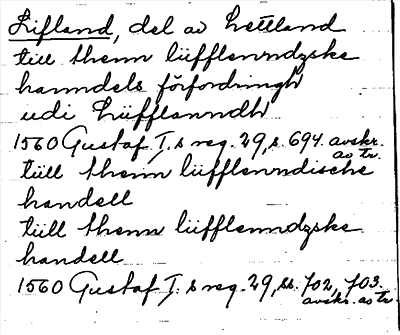 Lifland, del av Lettland
till thenn lüfflenndzske
hanndels förfordringh
udi Lüfflanndh
1560 Gustaf I.s reg. 29, s. 694. avskr. av tr.
tüll thenn lüfflenndische
handell
tüll thenn lüfflenndzske
handell
1560 Gustaf I.s reg. 29, ss. 702, 703.
avskr. av tr.